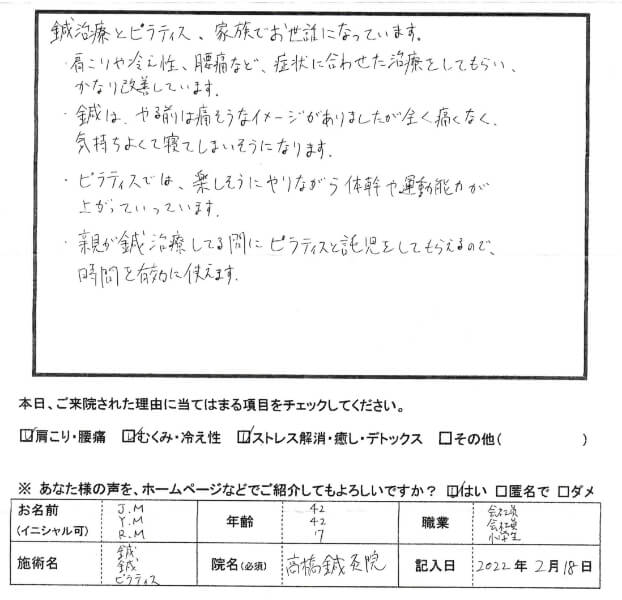 鍼治療とピラティス、家族でお世話になっています。
・肩こりや冷え性、腰痛など、症状に合わせた治療をしてもらい、
かなり改善しています。
・鍼は、やる前は痛そうなイメージがありましたが全く痛くなく、
気持ちよくて寝てしまいそうになります。
・ピラティスでは、楽しそうにやりながら体幹や運動能力が
上がっていっています。
・親が鍼治療してる間にピラティスと託児をしてもらえるので、
時間を有効に使えます。
本日、ご来院された理由に当てはまる項目をチェックしてください。
☑肩こり・腰痛 ☑むくみ・冷え性 ☑ストレス解消・癒し・デトックス □その他( )
※ あなた様の声を、ホームページなどでご紹介してもよろしいですか? ☑はい □匿名で □ダメ
お名前 (イニシャル可) J.M Y.M R.M 年齢 42 42 職業 会社員 会社員 小学生
施術名 鍼 鍼 ピラティス 院名(必須) 高橋鍼灸院 記入日 2022年2月18日